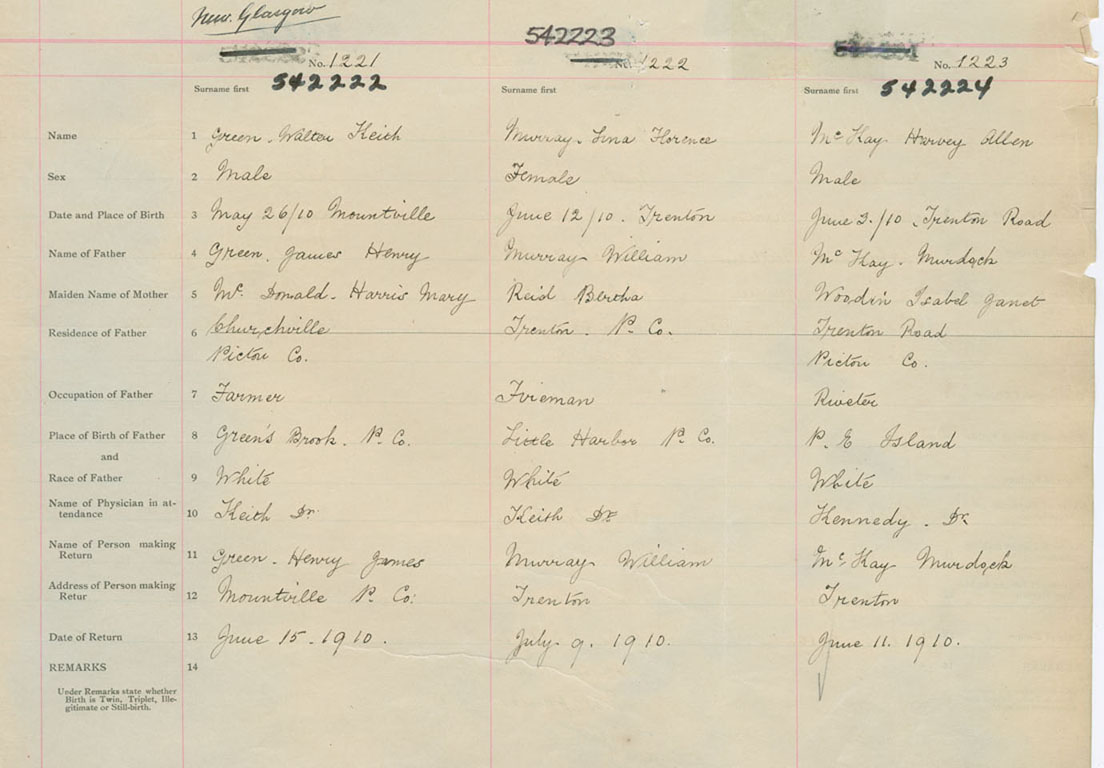 New. Glasgow
542223
No. 1221 No. 1222 No. 1223
542222 542224
Surname first Surname first Surname first
Name 1 Green. Walter Keith Murray. Lina Florence Mc Kay Harvey Allen
Sex 2 Male Female Male
Date and Place of Birth 3 May 26/10 Mountville June 12/10. Trenton June 2./10 Trenton Road
Name of Father 4 Green. James Henry Murray William Mc Kay. Murdock
Maiden Name of Mother 5 Mc. Donald. Harris Mary Reid Bertha Woodin Isabel Janet
Residence of Father 6 Churchville Trenton. P. Co. Trenton Road
Pictou Co. Pictou Co.
Occupation of Father 7 Farmer Fireman Riveter
Place of Birth of Father 8 Green's Brook. P. Co. Little Harbor P. Co. P. E Island
and
Race of Father 9 White White White
Name of Physician in at-
tendance 10 Keith Dr. Keith Dr. Kennedy. Dr.
Name of Person making
Return 11 Green. Henry James Murray William Mc Kay Murdock
Address of Person making
Retur 12 Mountville P. Co. Trenton Trenton
Date of Return 13 June 15. 1910. July 9. 1910. June 11. 1910.
REMARKS 14
Under Remarks state whether
Birth is Twin, Triplet, Ille-
gitimate or Still-birth.